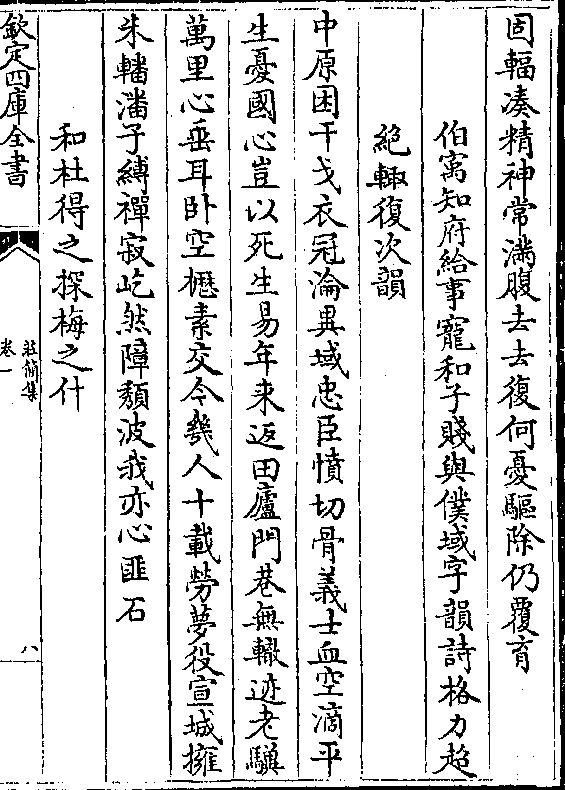 固輻湊精神常滿腹去去復何憂驅除仍覆育
伯寓知府給事寵和子賤與僕域字韻詩格力超
絶輙復次韻
中原困干戈衣冠淪異域忠臣憤切骨義士血空滴平
生憂國心豈以死生易年来返田廬門巷無轍迹老驥
萬里心垂耳卧空櫪素交今幾人十載勞夢役宣城擁
朱轓潘子縛禪寂屹然障頽波我亦心匪石
和杜得之探梅之什
欽定四庫全書
莊簡集
卷一
八